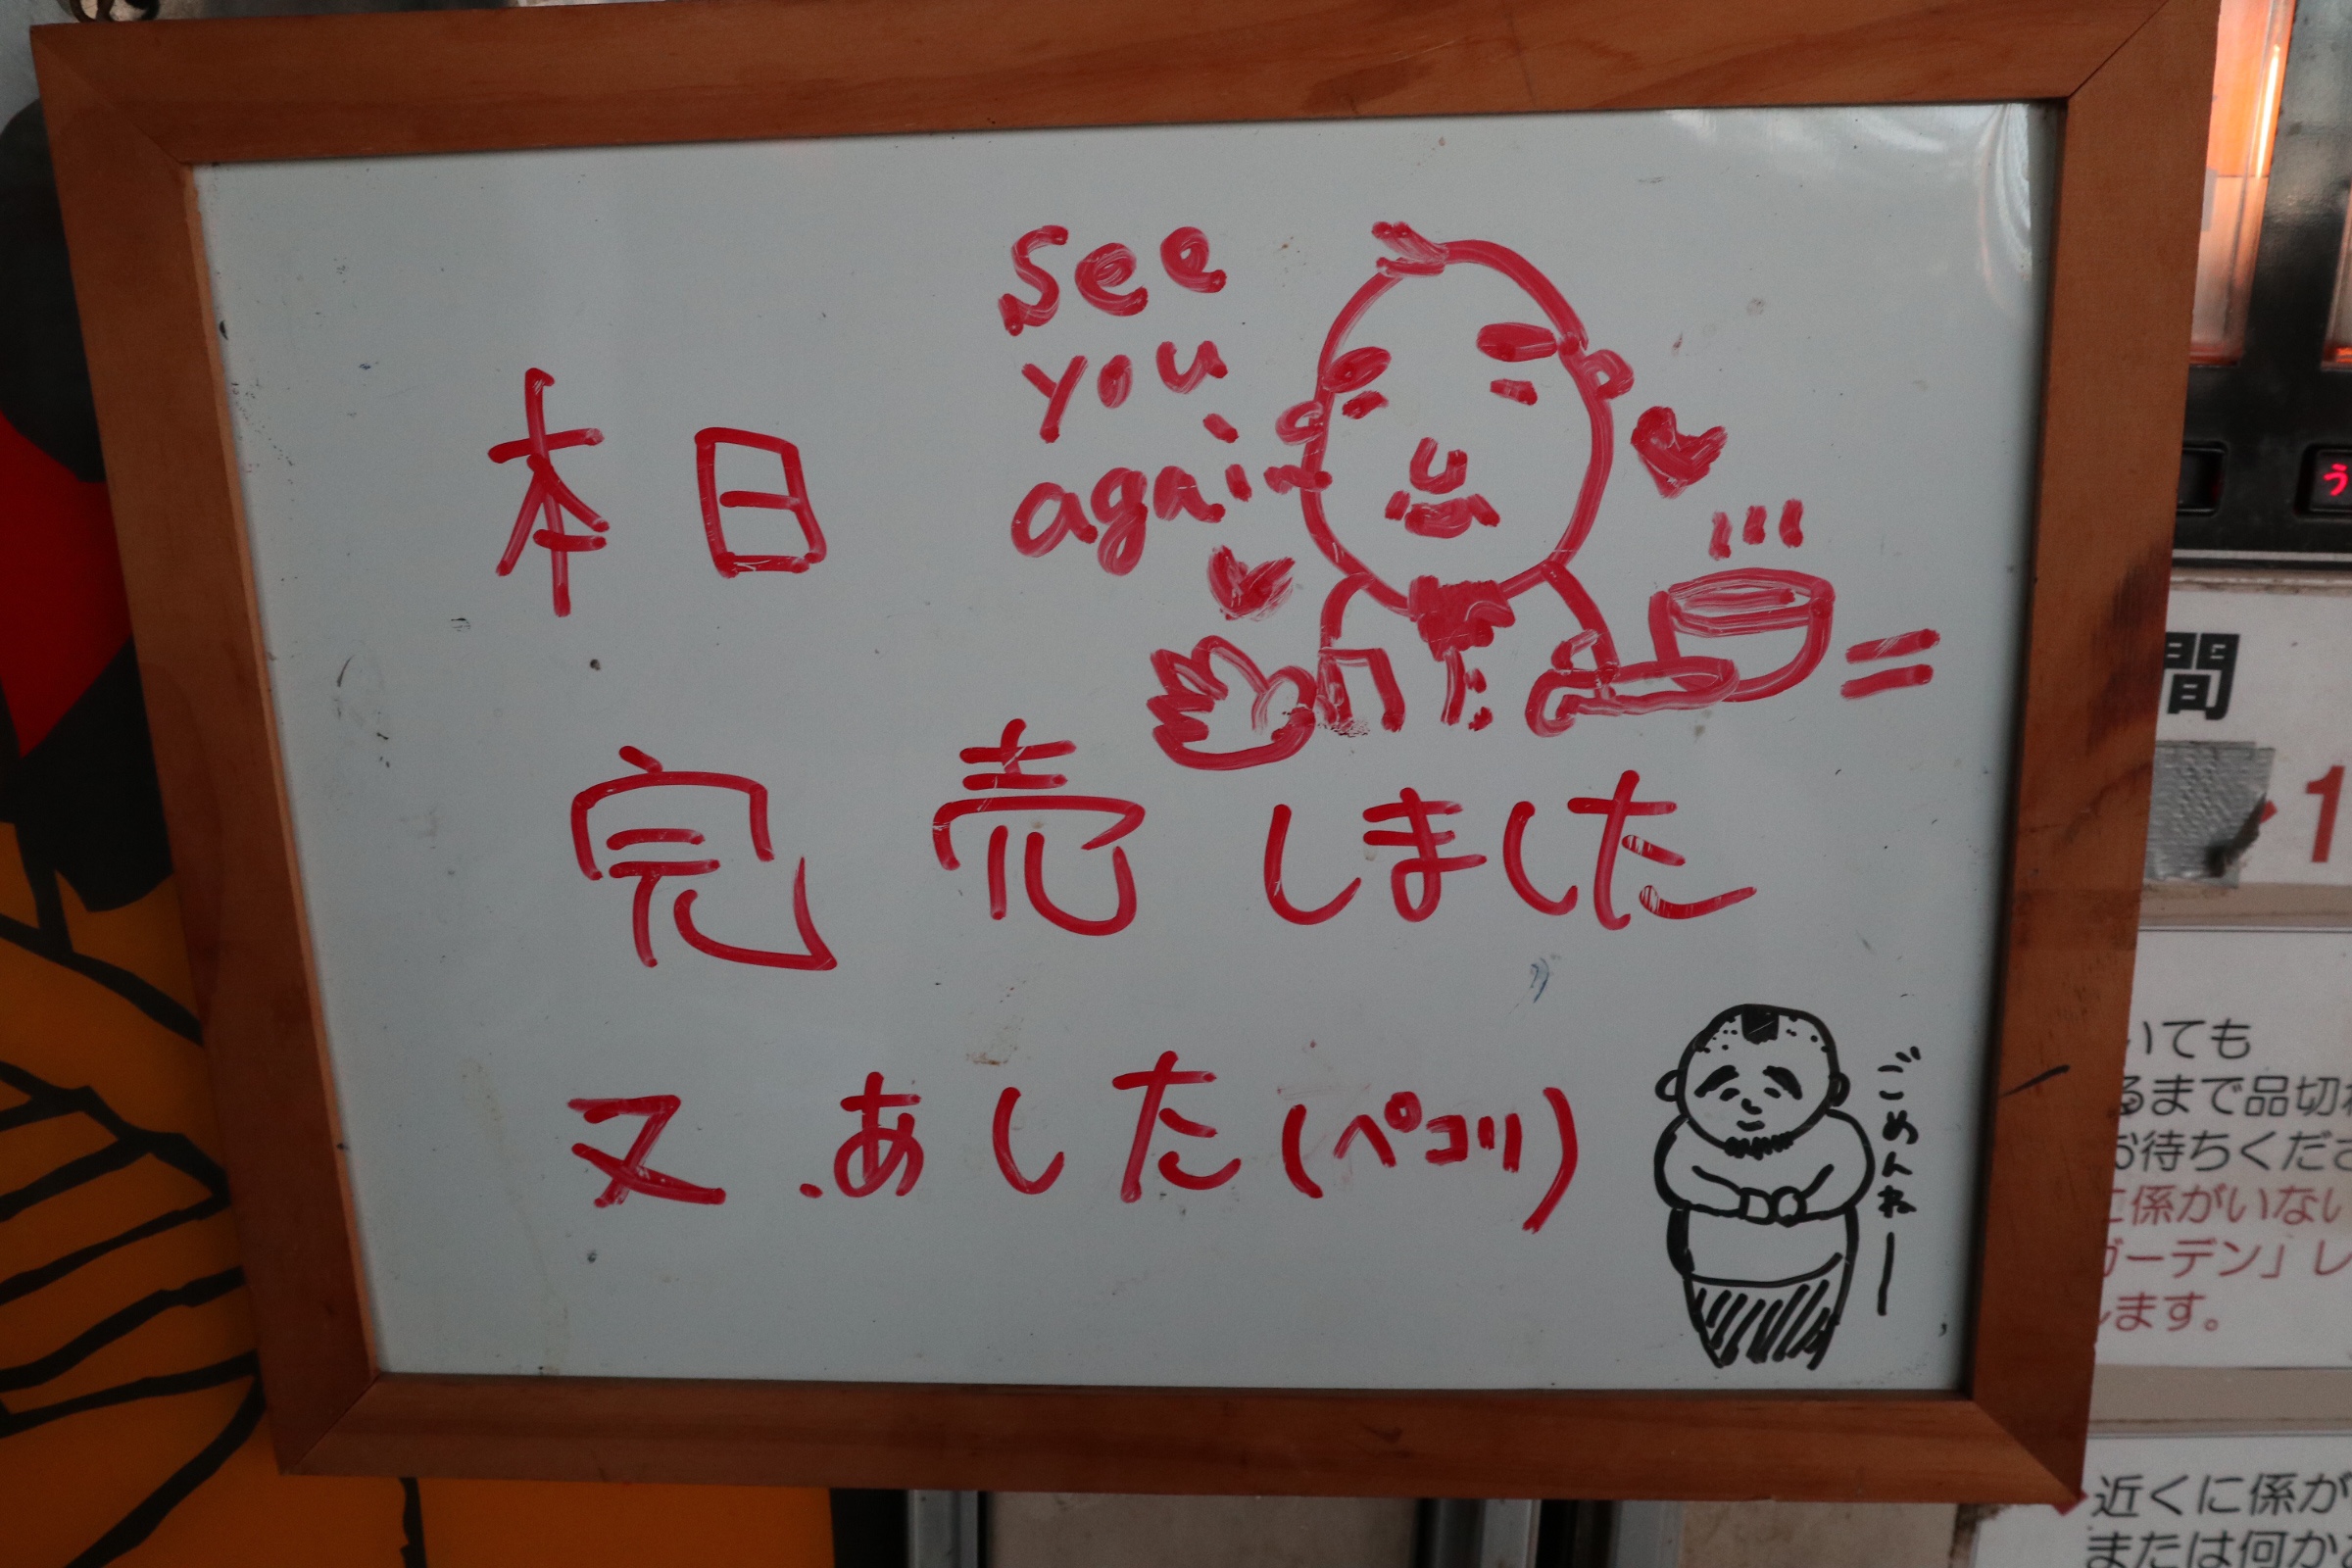 see
you
again
本日
完売しました
又.あした(ペコリ)
ごめんねー
う
間
1
いても
るまで品切れ
お待ちくださ
に係がいない
ガーデン」レ
します。
近くに係が
または何か